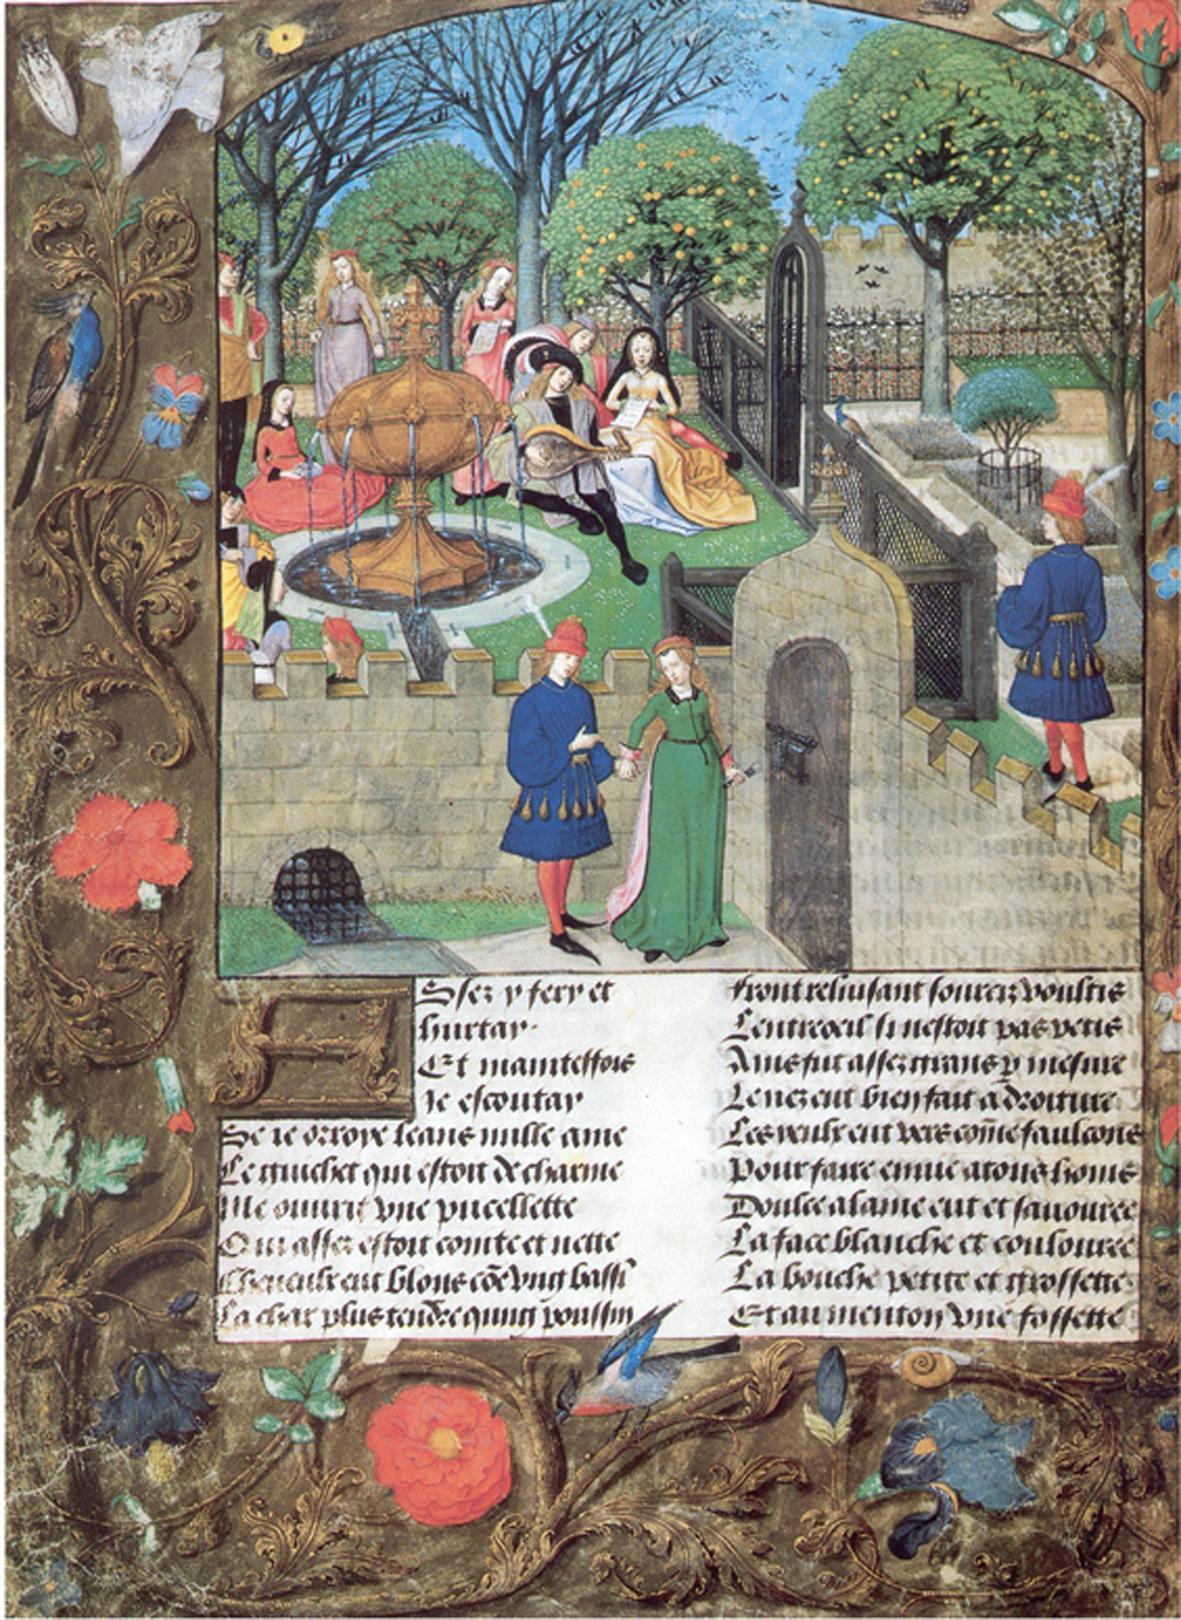 Assez y fery et
hurtay.
Et maintesfois
Je escoutay
Se ie orroye leans nulle ame
Le guichet qui estoit de charme
Me ouurit vne pucellette
Qui assez estoit cointe et nette
Cheueulx eut blons cõe vng bassĩ
La char plus tendre qung poussin
Front reluisant sourciz voultis
Lentreoeil si nestoit pas petis
Ains fut assez grans p̱ mesure
Le nez eut bien fait a droiture
Les yeulx eut vers cõme faulcons
Pour faire enuie a tous homs
Doulce alaine eut et sauouree
La face blanche et coulouree
La bouche petite et grossette
Et au menton vne fossette